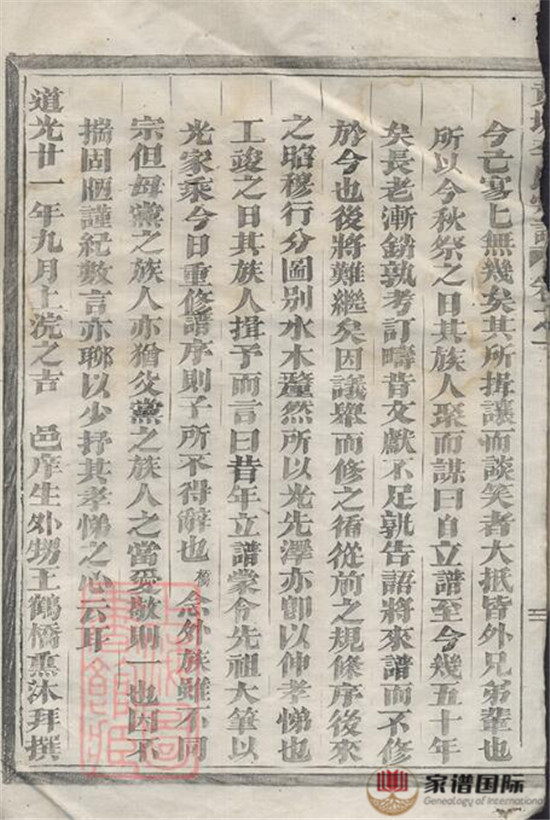 今亡寡已無幾矣其所揖讓而談笑者大抵皆外兄弟輩也
所以今秋祭之日其族人聚而謀曰自立譜至今幾五十年
矣長老漸鎖孰考訂疇昔文獻不足孰告詔將來譜而不修
於今也後將難繼矣因議舉而修之循從前之規條序後來
之昭穆行分圖別水木釐然所以光先澤亦卽以伸孝悌也
工竣之日其族人揖予而言曰昔年立譜蒙令先祖大筆以
光家乘今日重修譜序則子所不得辭也橋念外族雖不同
宗但母黨之族人亦猶父黨之族人之當愛敬則一也因不
揣固陋謹紀數言亦聊以少抒其孝悌之心云耳
道光廿一年九月上浣之吉 邑庠生外甥王鶴橋熏沐拜撰
家谱国际
Genealogy of International